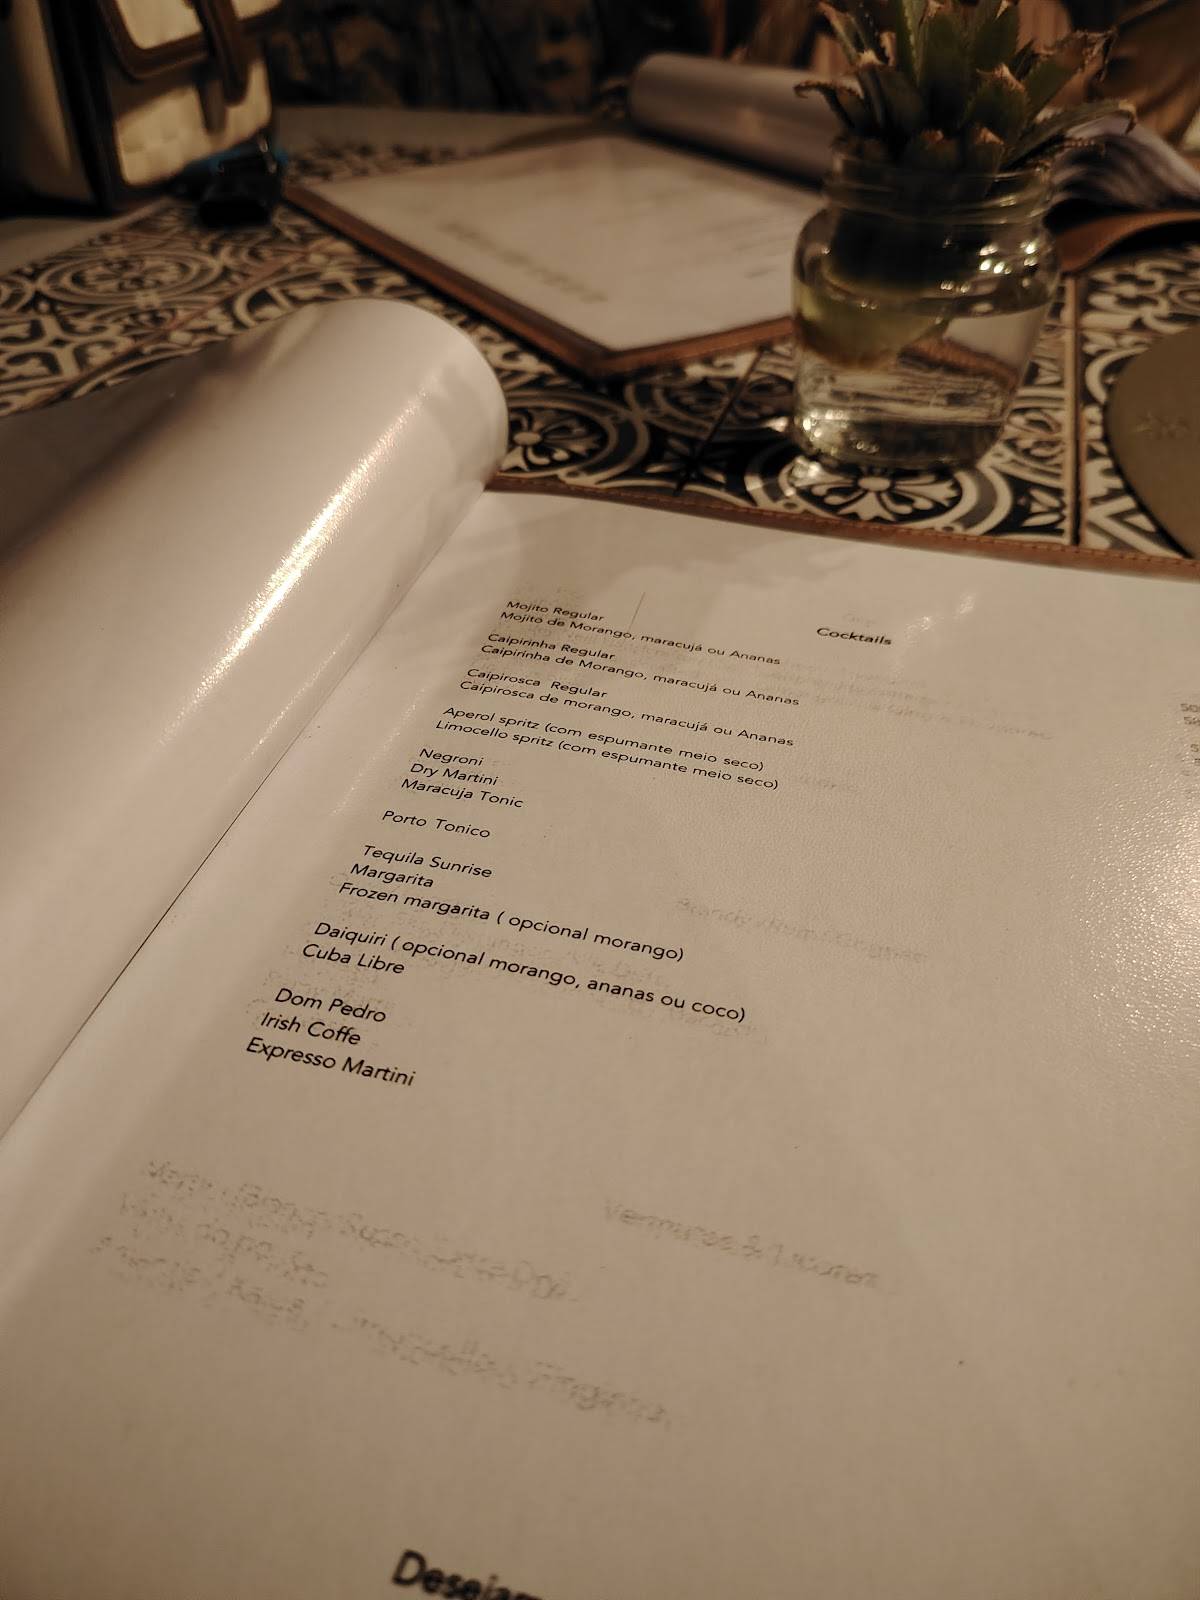 Cocktails
Mojito Regular
Mojito de Morango, maracujá ou Ananas
Caipirinha Regular
Caipirinha de Morango, maracujá ou Ananas
Caipirosca Regular
Caipirosca de morango, maracujá ou Ananas
Aperol spritz (com espumante meio seco)
Limocello spritz (com espumante meio seco)
Negroni
Dry Martini
Maracuja Tonic
Porto Tonico
Tequila Sunrise
Margarita
Frozen margarita ( opcional morango)
Daiquiri ( opcional morango, ananas ou coco)
Cuba Libre
Dom Pedro
Irish Coffe
Expresso Martini